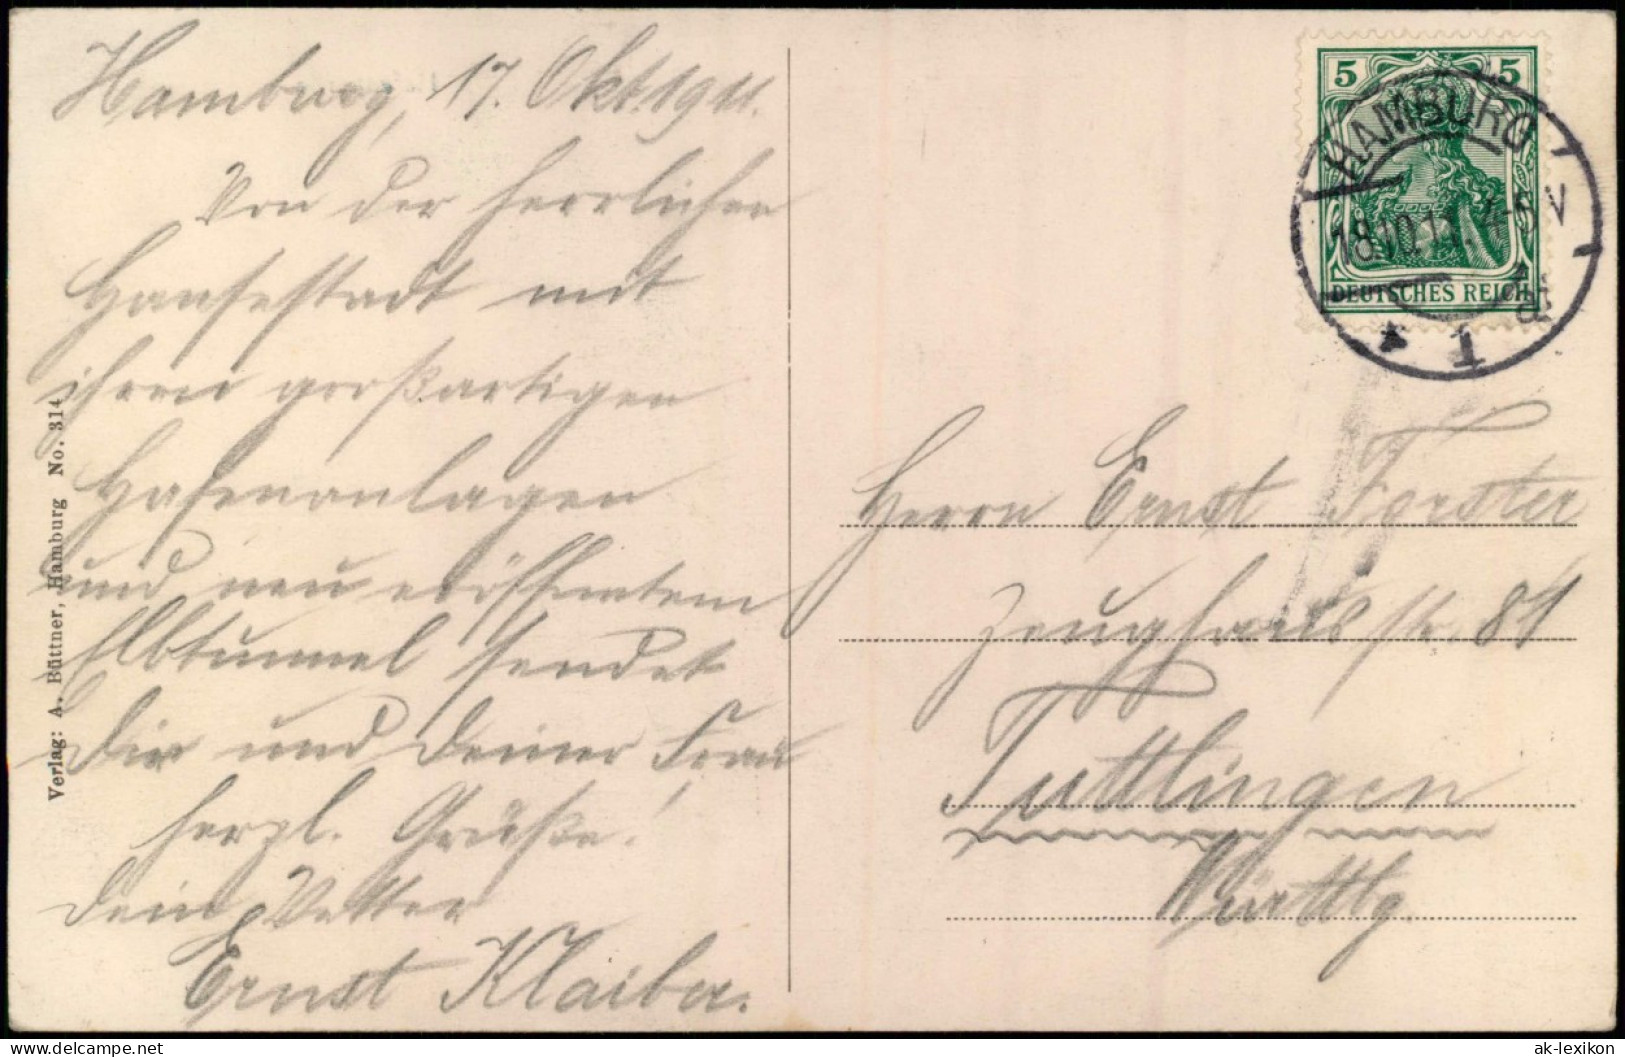 Hamburg, 17. Okt. 1911.
Von der herrlichen
Hansestadt mit
ihren großartigen
Hafenanlagen
und neu eröffnetem
Elbtunnel sendet
Dir und Deiner Frau
herzl. Grüße!
Dein Vetter
Ernst Klaiber.
Verlag: A. Büttner, Hamburg No. 314
5 5
DEUTSCHES REICH
HAMBURG
18.10.11. 4-5 V
1
Herrn Ernst Forster
Zeughausstr. 81
Tuttlingen
Württbg.
ak-lexikon